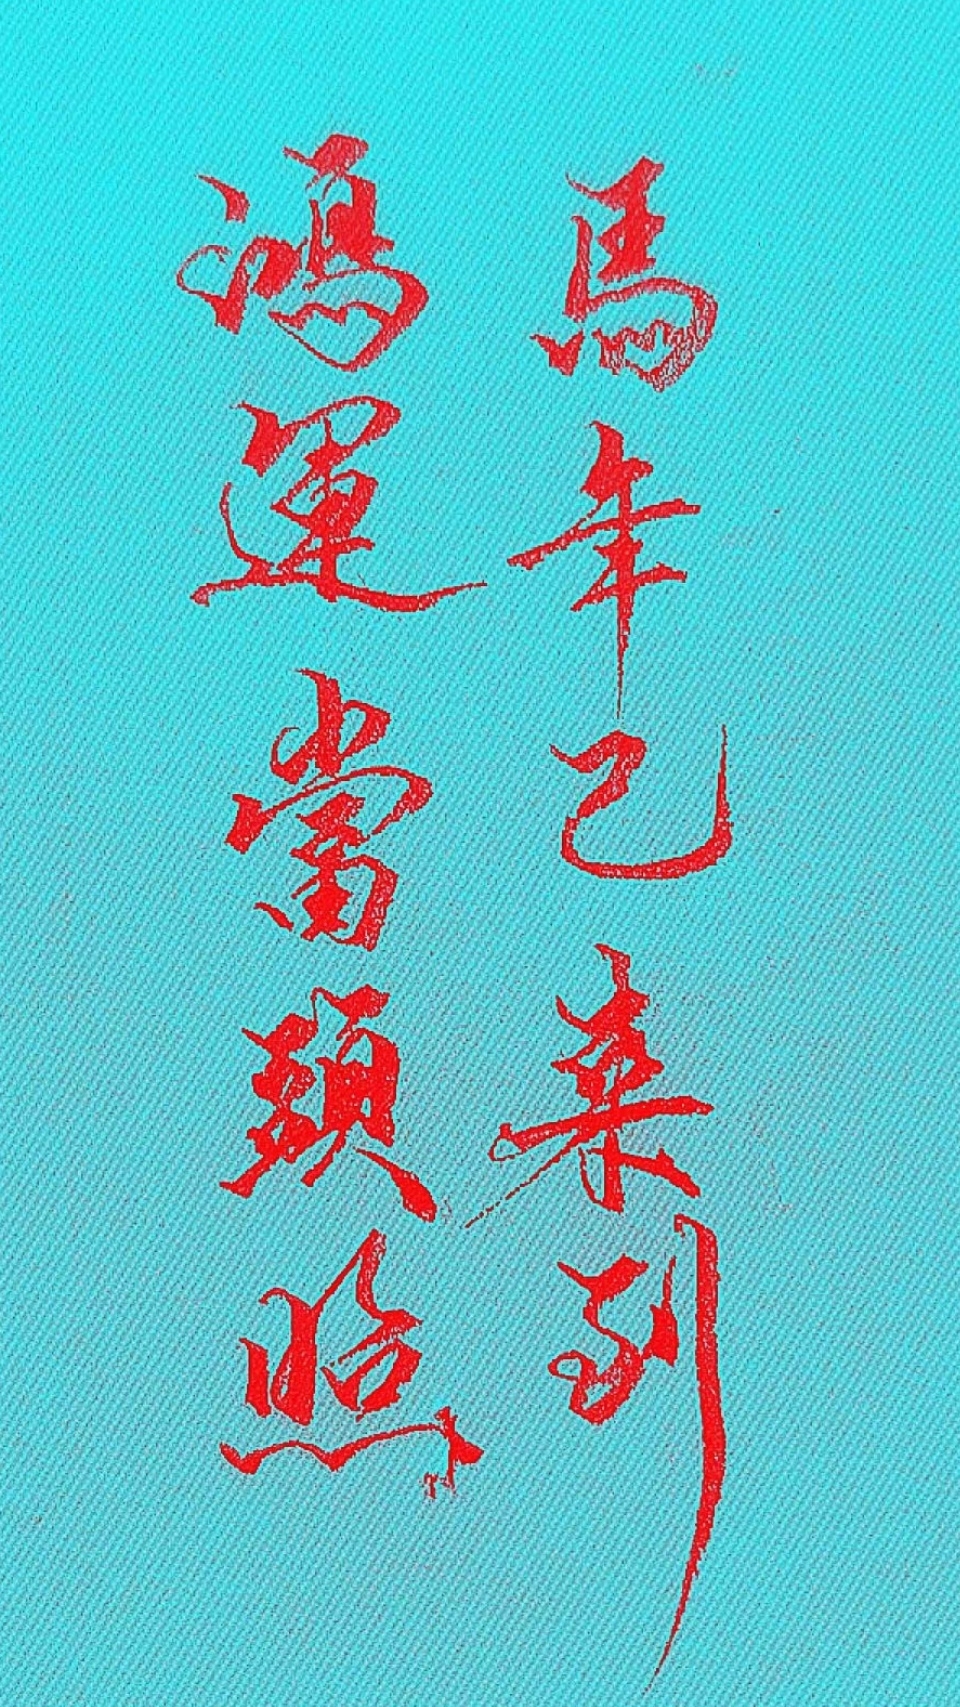 馬年已来到
鴻運當頭照